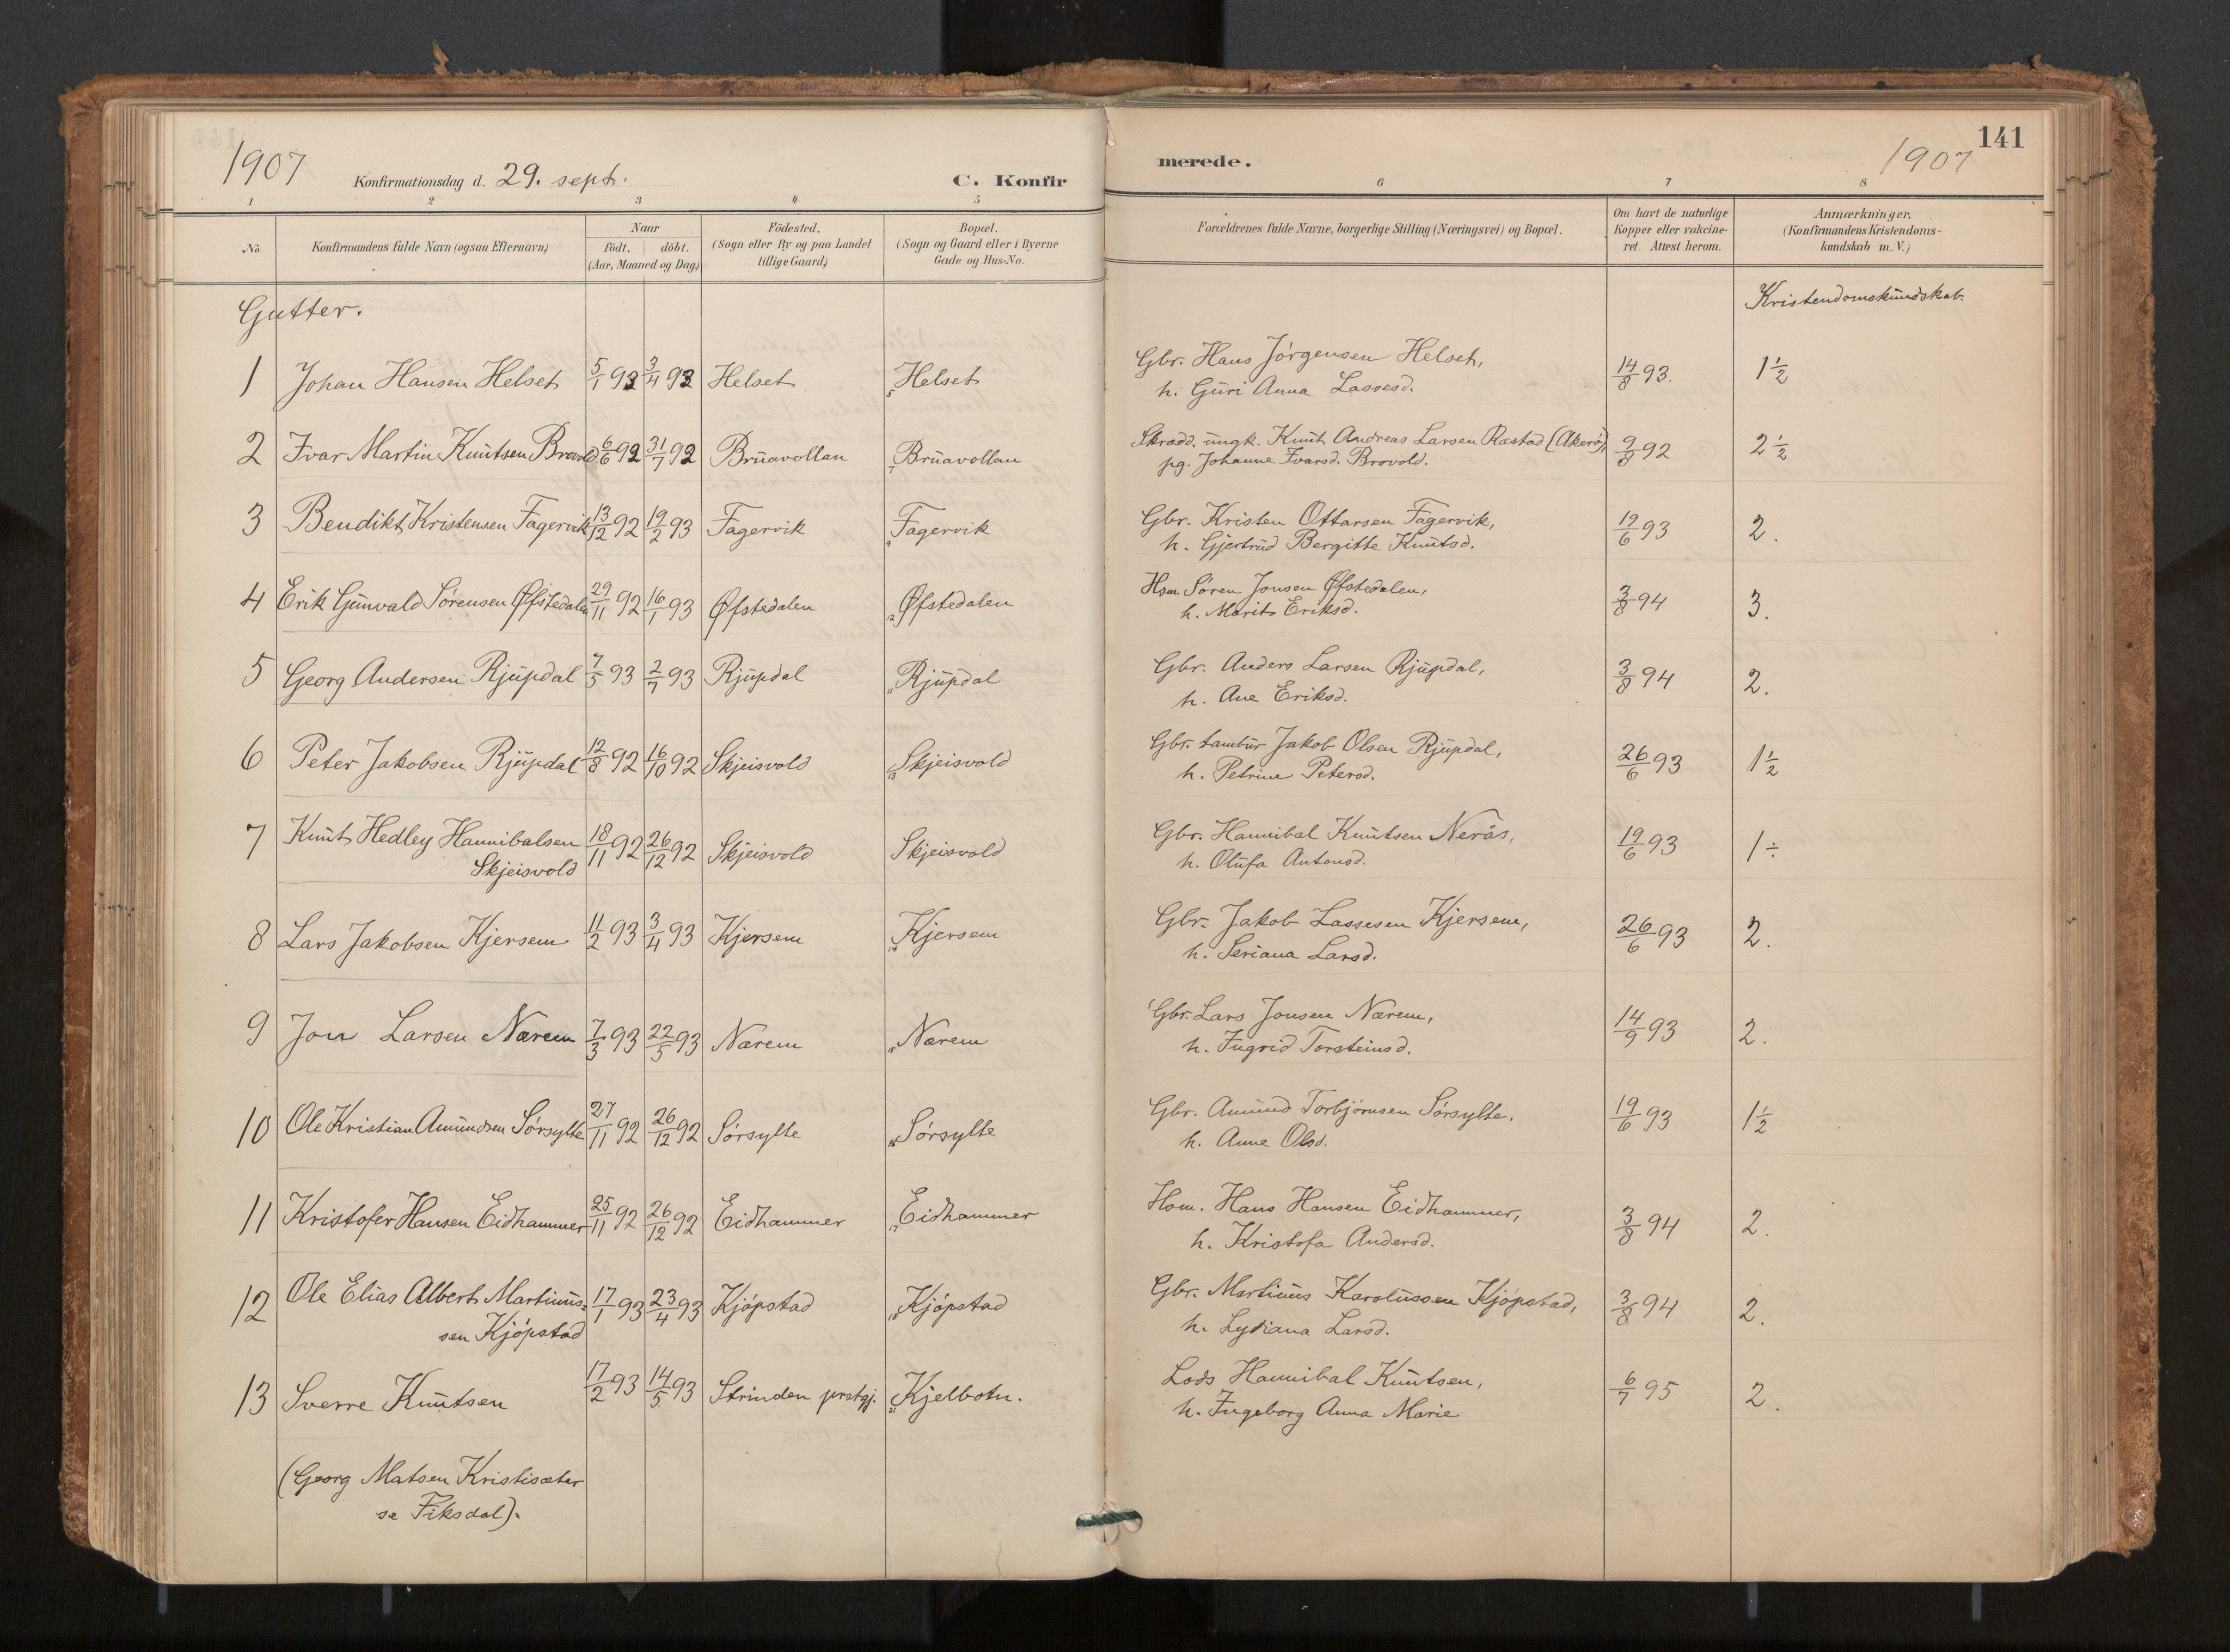 1907 Konfirmationsdag d. 29. sept. C. Konfir
merede. 1907 141
1 2 3 4 5 6 7 8
No. Konfirmandens fulde Navn (ogsaa Efternavn) Naar födt. döbt. (Aar, Maaned og Dag) Födested. (Sogn eller By og paa Landet tillige Gaard) Bopæl. (Sogn og Gaard eller i Byerne Gade og Hus-No. Forældrenes fulde Navne, borgerlige Stilling (Næringsvei) og Bopæl. Om havt de naturlige Kopper eller vakcineret. Attest herom. Anmærkninger. (Konfirmandens Kristendomskundskab m. V.)
Gutter. Kristendomskundskab.
1 Johan Hansen Helset 5/1 93 3/4 93 Helset 5 Helset Gbr. Hans Jörgensen Helset, 14/8 93. 1 1/2
h. Guri Anna Lassesd.
2 Ivar Martin Knutsen Brovold 6/6 92 31/7 92 Bruavollan 7 Bruavollan Skradd. ungk. Knut Andreas Larsen Rastad (Akerö), 9/8 92 2 1/2
pg. Johanne Ivarsd. Brovold.
3 Bendikt Kristensen Fagervik 13/12 92 19/2 93 Fagervik Fagervik Gbr. Kristen Ottarsen Fagervik, 19/6 93 2.
h. Gjertrud Bergitte Knutsd.
4 Erik Gunvald Sörensen Øfstedalen 29/11 92 16/1 93 Øfstedalen 12 Øfstedalen Hsm. Sören Jonsen Øfstedalen, 3/8 94 3.
h. Marit Eriksd.
5 Georg Andersen Rjupdal 7/5 93 2/7 93 Rjupdal 11 Rjupdal Gbr. Anders Larsen Rjupdal, 3/8 94 2.
h. Ane Eriksd.
6 Peter Jakobsen Rjupdal 12/8 92 16/10 92 Skjeisvold 13 Skjeisvold Gbr. tambur Jakob Olsen Rjupdal, 26/6 93 1 1/2
h. Petrine Petersd.
7 Knut Hedley Hannibalsen 18/11 92 26/12 92 Skjeisvold Skjeisvold Gbr. Hannibal Knutsen Nerås, 19/6 93 1 ÷
Skjeisvold h. Olufa Antonsd.
8 Lars Jakobsen Kjersem 11/2 93 3/4 93 Kjersem 14 Kjersem Gbr. Jakob Lassesen Kjersem, 26/6 93 2.
h. Seriana Larsd.
9 Jon Larsen Nærem 7/3 93 22/5 93 Nærem 15 Nærem Gbr. Lars Jonsen Nærem, 14/9 93 2.
h. Ingrid Torsteinsd.
10 Ole Kristian Amundsen Sörsylte 27/11 92 26/12 92 Sörsylte 16 Sörsylte Gbr. Amund Torbjörnsen Sörsylte, 19/6 93 1 1/2
h. Anne Olsd.
11 Kristofer Hansen Eidhammer 25/11 92 26/12 92 Eidhammer 17 Eidhammer Hsm. Hans Hansen Eidhammer, 3/8 94 2.
h. Kristofa Andersd.
12 Ole Elias Albert Martinus= 17/1 93 23/4 93 Kjöpstad 18 Kjöpstad Gbr. Martinus Karolussen Kjöpstad, 3/8 94 2.
sen Kjöpstad h. Lydiana Larsd.
13 Sverre Knutsen 17/2 93 14/5 93 Strinden prstgj. 21 Kjelbotn. Lods Hannibal Knutsen, 6/7 95 2.
h. Ingeborg Anna Marie
(Georg Matsen Kristisæter
se Fiksdal).